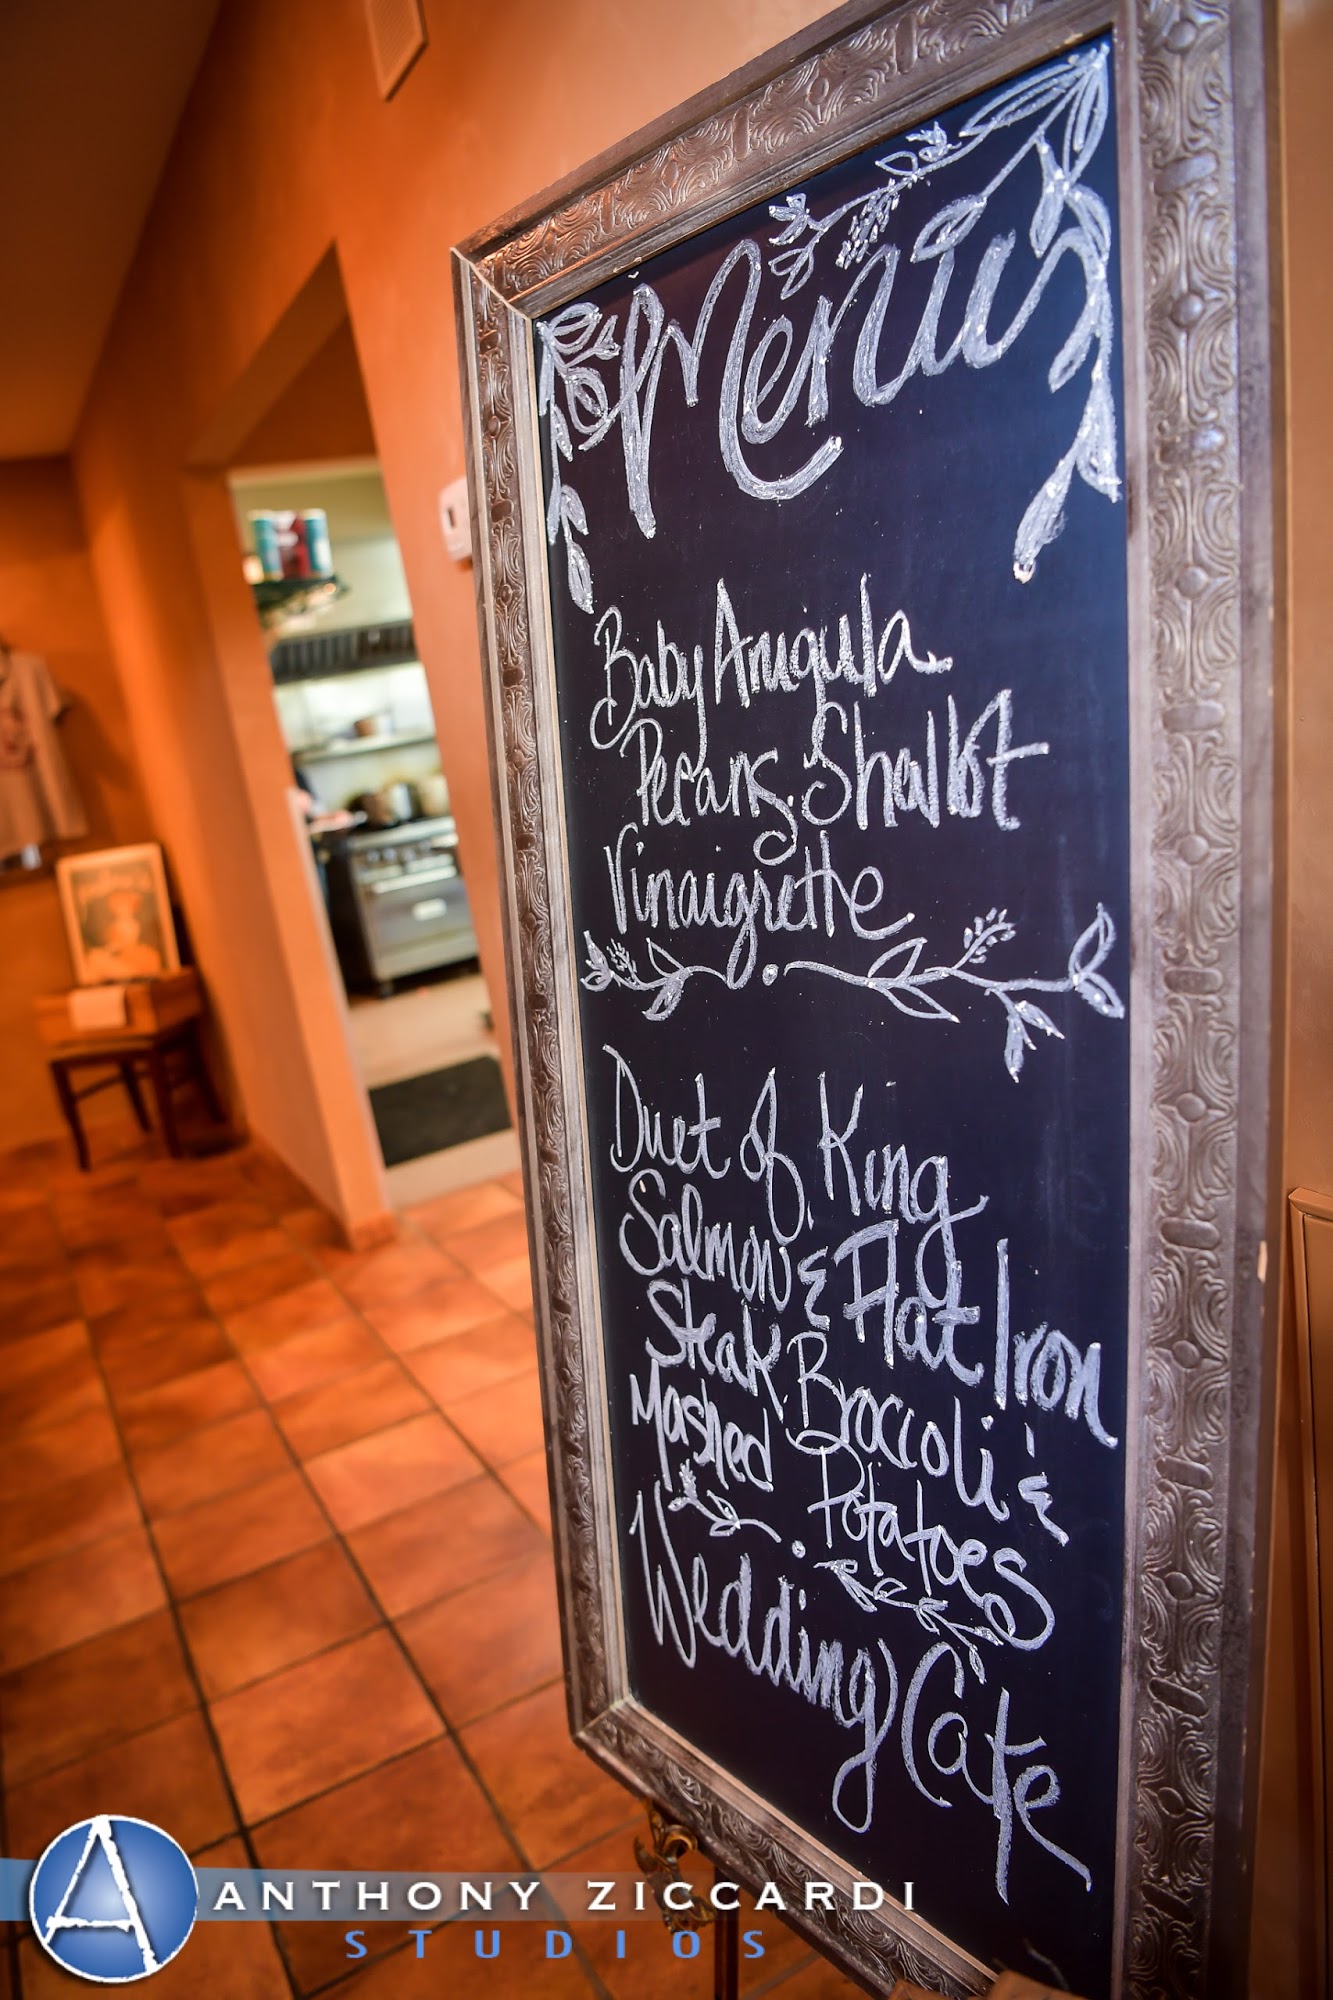 Menu
Baby Arugula
Pecans, Shallot
Vinaigrette
Duet of King
Salmon & Flat Iron
Steak, Broccoli &
Mashed Potatoes
Wedding Cake
ANTHONY ZICCARDI
STUDIOS